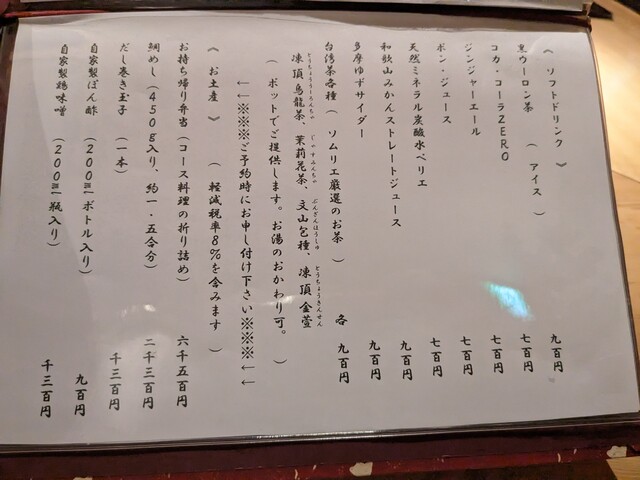 《 ソフトドリンク 》
黒ウーロン茶 ( アイス ) 九百円
コカ・コーラZERO 七百円
ジンジャーエール 七百円
ポン・ジュース 七百円
天然ミネラル炭酸水ペリエ 七百円
和歌山みかんストレートジュース 九百円
多摩ゆずサイダー 九百円
台湾茶各種 ( ソムリエ厳選のお茶 ) 各 九百円
凍頂烏龍茶、茉莉花茶、文山包種、凍頂金萱
( ポットでご提供します。お湯のおかわり可。 )
←←※※※ご予約時にお申し付け下さい※※※←←
《 お土産 》 ( 軽減税率8%を含みます )
お持ち帰り弁当(コース料理の折り詰め) 六千五百円
鯛めし(450g入り、約一・五合分) 二千三百円
だし巻き玉子 (一本) 千三百円
自家製ぽん酢 (200㎖ボトル入り) 九百円
自家製鶏味噌 (200㎖瓶入り) 千三百円